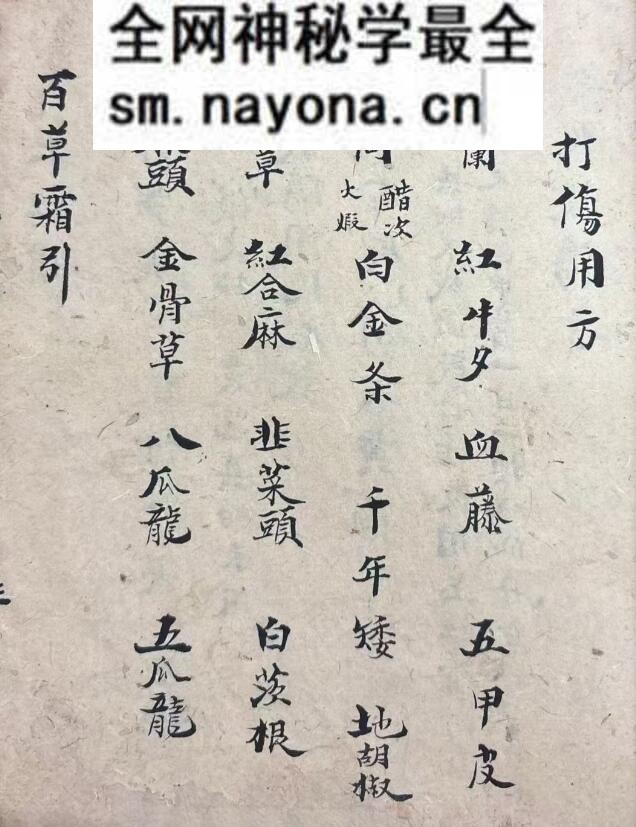 全网神秘学最全
sm.nayona.cn
打傷用方
蘭 紅牛夕 血藤 五甲皮
醋次火煆 白金条 千年矮 地胡椒
草 紅合麻 韭菜頭 白茨根
頭 金骨草 八瓜龍 五瓜龍
百草霜引